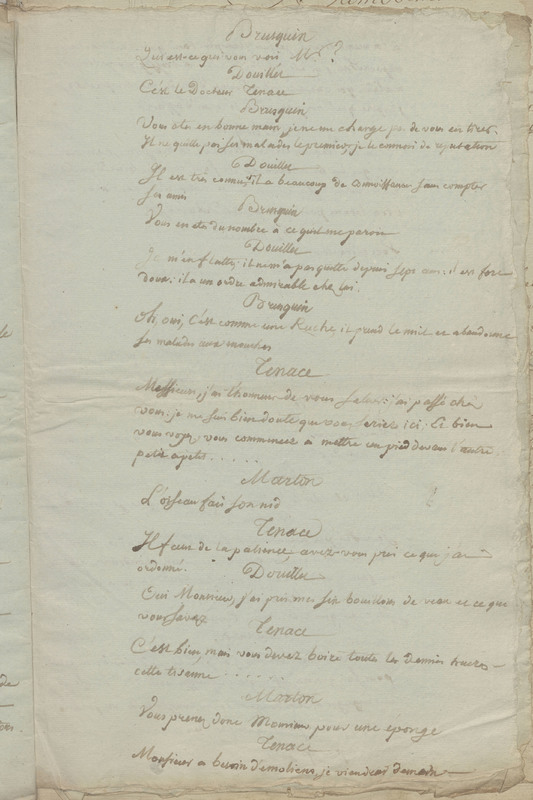 Brusquin
Qui est-ce qui vous voit Mr ?
Douillet
C'est le Docteur Tenace
Brusquin
Vous etes en bonne main, je ne me charge pas de vous en tirer.
Il ne quitte pas ses malades le premier, je le connois de réputation
Douillet
Il est très connu, il a beaucoup de connoissances sans compter
ses amis
Brusquin
Vous en etes du nombre à ce qu'il me paroit
Douillet
Je m'en flatte; il ne m'a pas quitté depuis sept ans: il est fort
doux: il a un ordre admirable chez lui.
Brusquin
Oh, oui, C'est comme une Ruche, il prend le miel et abandonne
ses malades aux mouches
Tenace
Messieurs, j'ai l'honneur de vous saluer: j'ai passé chez
vous: je me suis bien douté que vous seriez ici: Eh bien
vous voyez vous commencez à mettre un pied devant l'autre
petit à petit. . . . .
Marton
L'oiseau fait son nid
Tenace
Il faut de la patience, avez-vous pris ce que j'ai
ordonné.
Douillet
Oui Monsieur, j'ai pris mes six bouillons de veau et ce que
vous savez
Tenace
C'est bien, mais vous devez boire toutes les demies heures
cette tisanne . . . . . .
Marton
Vous prenez donc Monsieur pour une eponge
Tenace
Monsieur a besoin d'emoliens, je viendrai demain